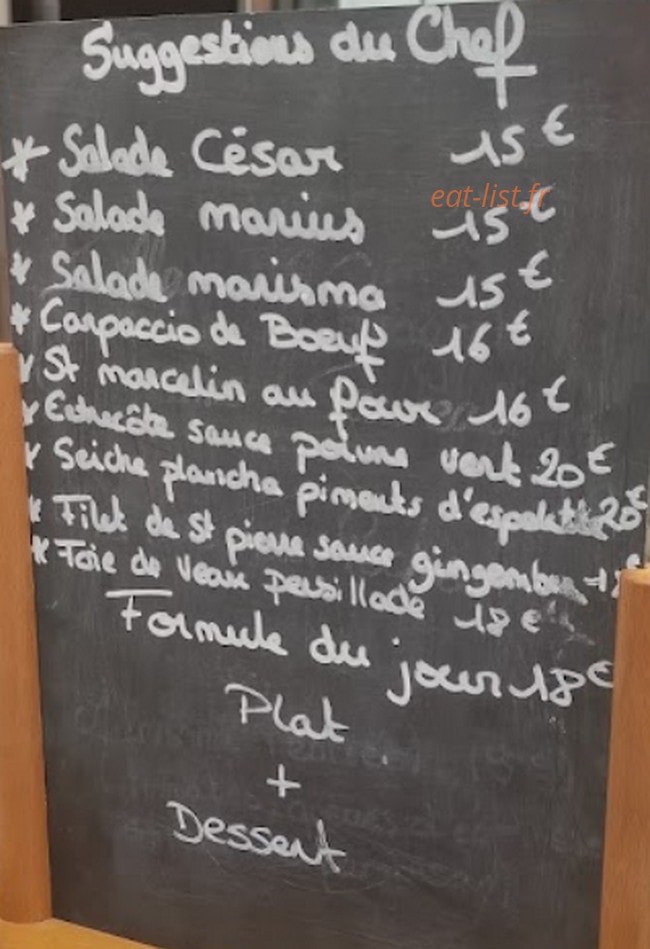 Suggestions du Chef
* Salade César 15 €
eat-list.fr
* Salade marius 15 €
* Salade marisma 15 €
* Carpaccio de Boeuf 16 €
* St marcelin au four 16 €
* Entrecôte sauce poivre vert 20 €
* Seiche plancha piments d'espelette 20 €
* Filet de St pierre sauce gingembre
* Foie de veau persillade 18 €
Formule du jour 18 €
Plat
+
Dessert